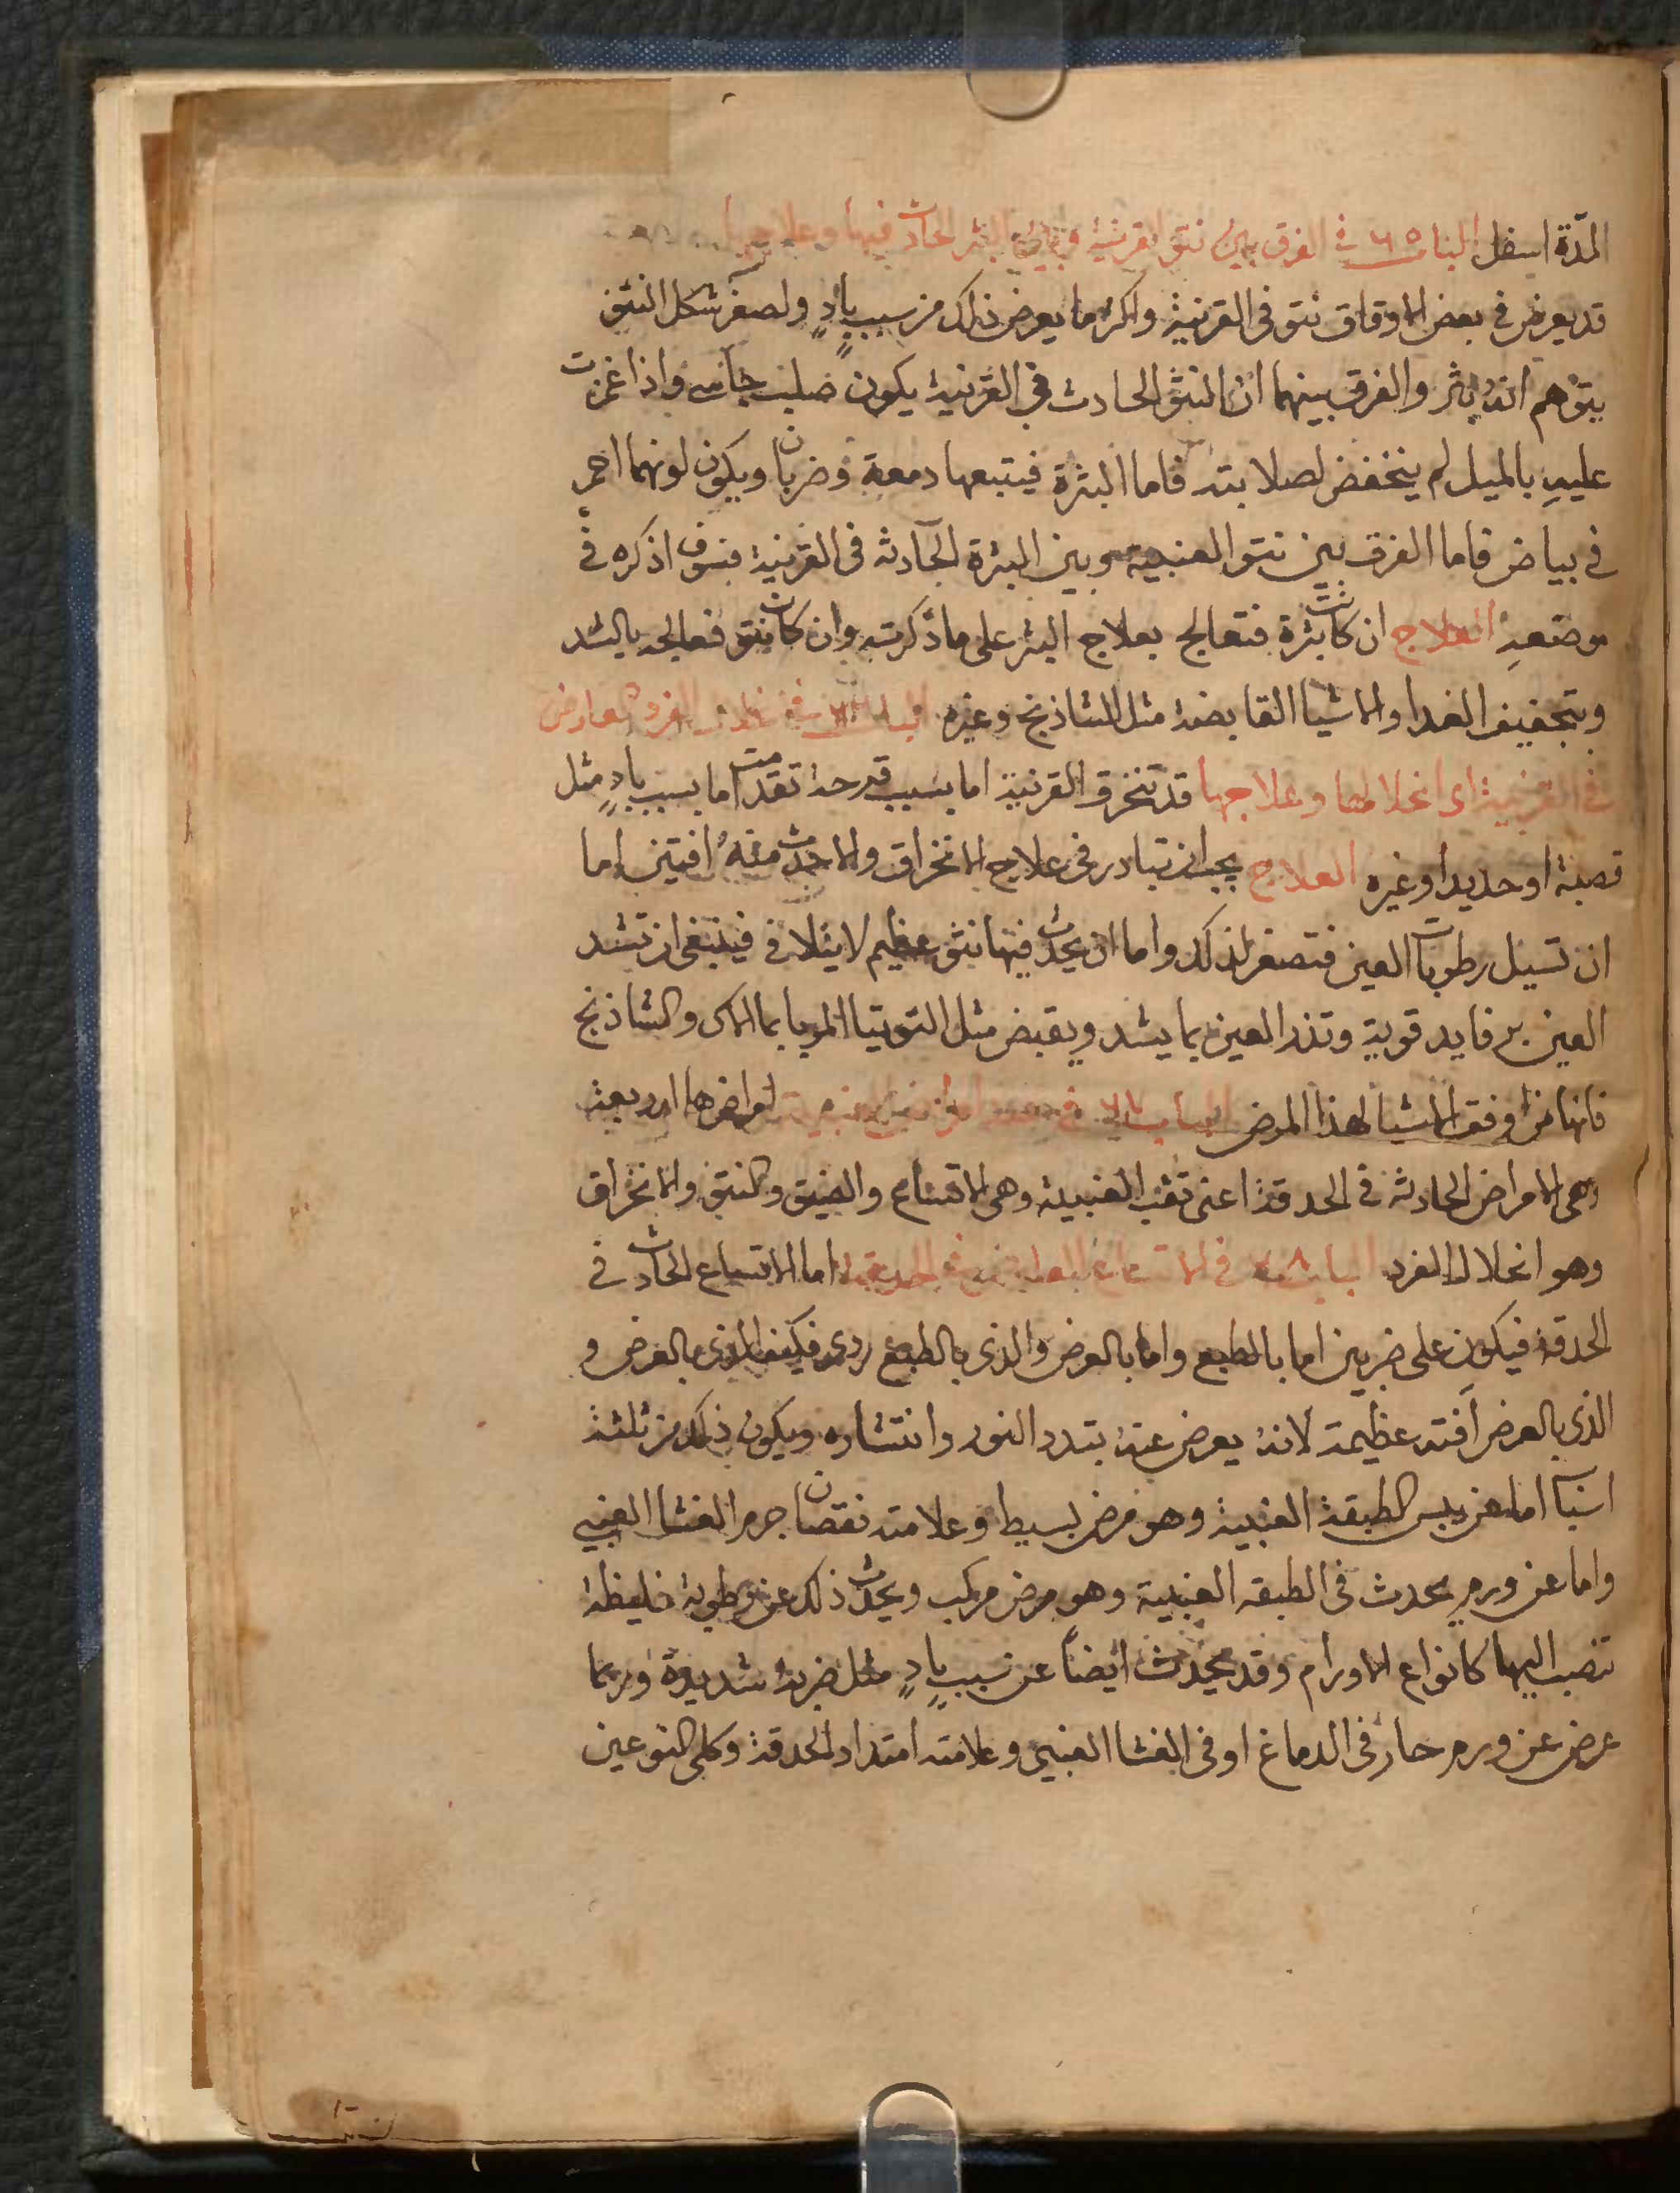 المدّة اسفل الباب ٦٥ فى الفرق بين نتو القرنية وبين البثر الحادث فيها وعلاجها
قد يعرض فى بعض الاوقات نتو فى القرنية واكثر ما يعرض ذلك من سبب بادٍ ولصغر شكل النتو
يتوهم انه بثر والفرق بينهما ان النتو الحادث فى القرنية يكون صلب جاسى واذا غمزت
عليهِ بالميل لم ينخفض لصلابته فاما البثرة فيتبعها دمعة وضربان ويكون لونهما احمر
فى بياض فاما الفرق بين نتو العنبية وبين البثرة الحادثه فى القرنية فسوف اذكره فى
موضعهِ العلاج ان كانت بثرة فتعالج بعلاج البثر على ما ذكرته وان كان نتو فعالجه بالشد
وبتجفيف الغدا والاشيا القابضة مثل الشاذنج وغيره الباب ٦٦ فى الفرد العارض
فى القرنية اى انحلالها وعلاجها قد تنخرق القرنية اما بسبب قرحة تقدمت اما بسبب بادٍ مثل
قصبة او حديد او غيره العلاج يجب ان تبادر فى علاج الانخراق والا حدث منهُ افتين اما
ان تسيل رطوبات العين فتصغر لذلك واما ان يحدث فيها نتو عظيم لا يتلافى فينبغى ان تشد
العين برفايد قوية وتذر العين بما يشد ويقبض مثل التوتيا المربا بما الاس والشاذنج
فانها من اوفق الاشيا لهذا المرض الباب ٦٧ فى امراضها اربعة
وهى الامراض الحادثة فى الحدقة اعنى ثقب العنبية وهى الاتساع والضيق والنتو والانخراق
وهو انحلال الفرد الباب ٦٨ فى الاتساع العارض فى الحدقة اما الاتساع الحادث فى
الحدقة فيكون على ضربين اما بالطبع واما بالعرض والذى بالطبع ردى فكيف الذى بالعرض و
الذى بالعرض آفته عظيمة لانه يعرض عنه تبدد النور وانتشاره ويكون ذلك من ثلثة
اسباب اما عن يبس الطبقة العنبية وهو مرض بسيط وعلامته نقصان جرم الغشا العنبى
واما عن ورم يحدث فى الطبقه العنبية وهو مرض مركب ويحدث ذلك عن رطوبة غليظة
تنصب اليها كانواع الاورام وقد يحدث ايضاً عن سببٍ بادٍ مثل ضربة شديدة وربما
عرض عن ورم حار فى الدماغ او فى الغشا العنبى وعلامته امتداد الحدقة وكلى النوعين